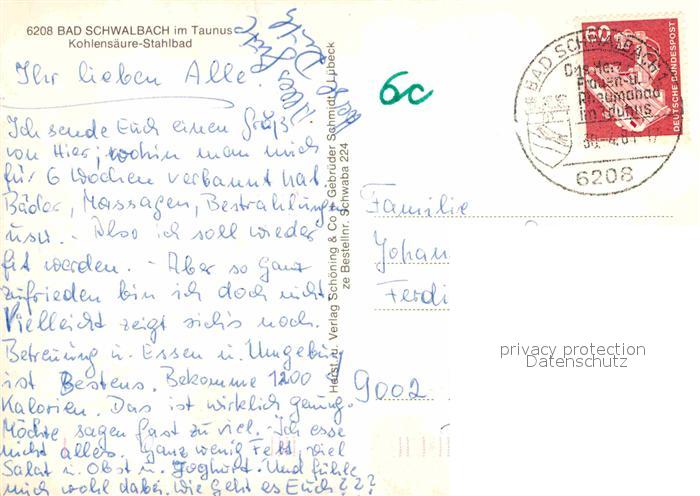 6208 BAD SCHWALBACH im Taunus
Kohlensäure-Stahlbad
Ihr lieben Alle.
Ich sende Euch einen Gruß
von Hier, wohin man mich
für 6 Wochen verbannt hat
Bäder, Massagen, Bestrahlungen
usw. - Also ich soll wieder
fit werden. - Aber so ganz
zufrieden bin ich doch nicht
Vielleicht zeigt sich's noch.
Betreuung u. Essen u. Umgebung
ist Bestens. Bekomme 1200
Kalorien. Das ist wirklich genug.
Möchte sagen fast zu viel. Ich esse
nicht alles. Ganz wenig Fett, viel
Salat u. Obst u. Joghurt. Und fühle
mich wohl dabei. Wie geht es Euch???
Alles Gute
Herst. u. Verlag Schöning & Co + Gebrüder Schmidt, Lübeck
ze Bestellnr. Schwaba 224
6c
60
DEUTSCHE BUNDESPOST
BAD SCHWALBACH 1
Das Herz-
Frauen-u.
Rheumabad
im Taunus
6208
Familie
Johan
Ferdi
9002
privacy protection
Datenschutz